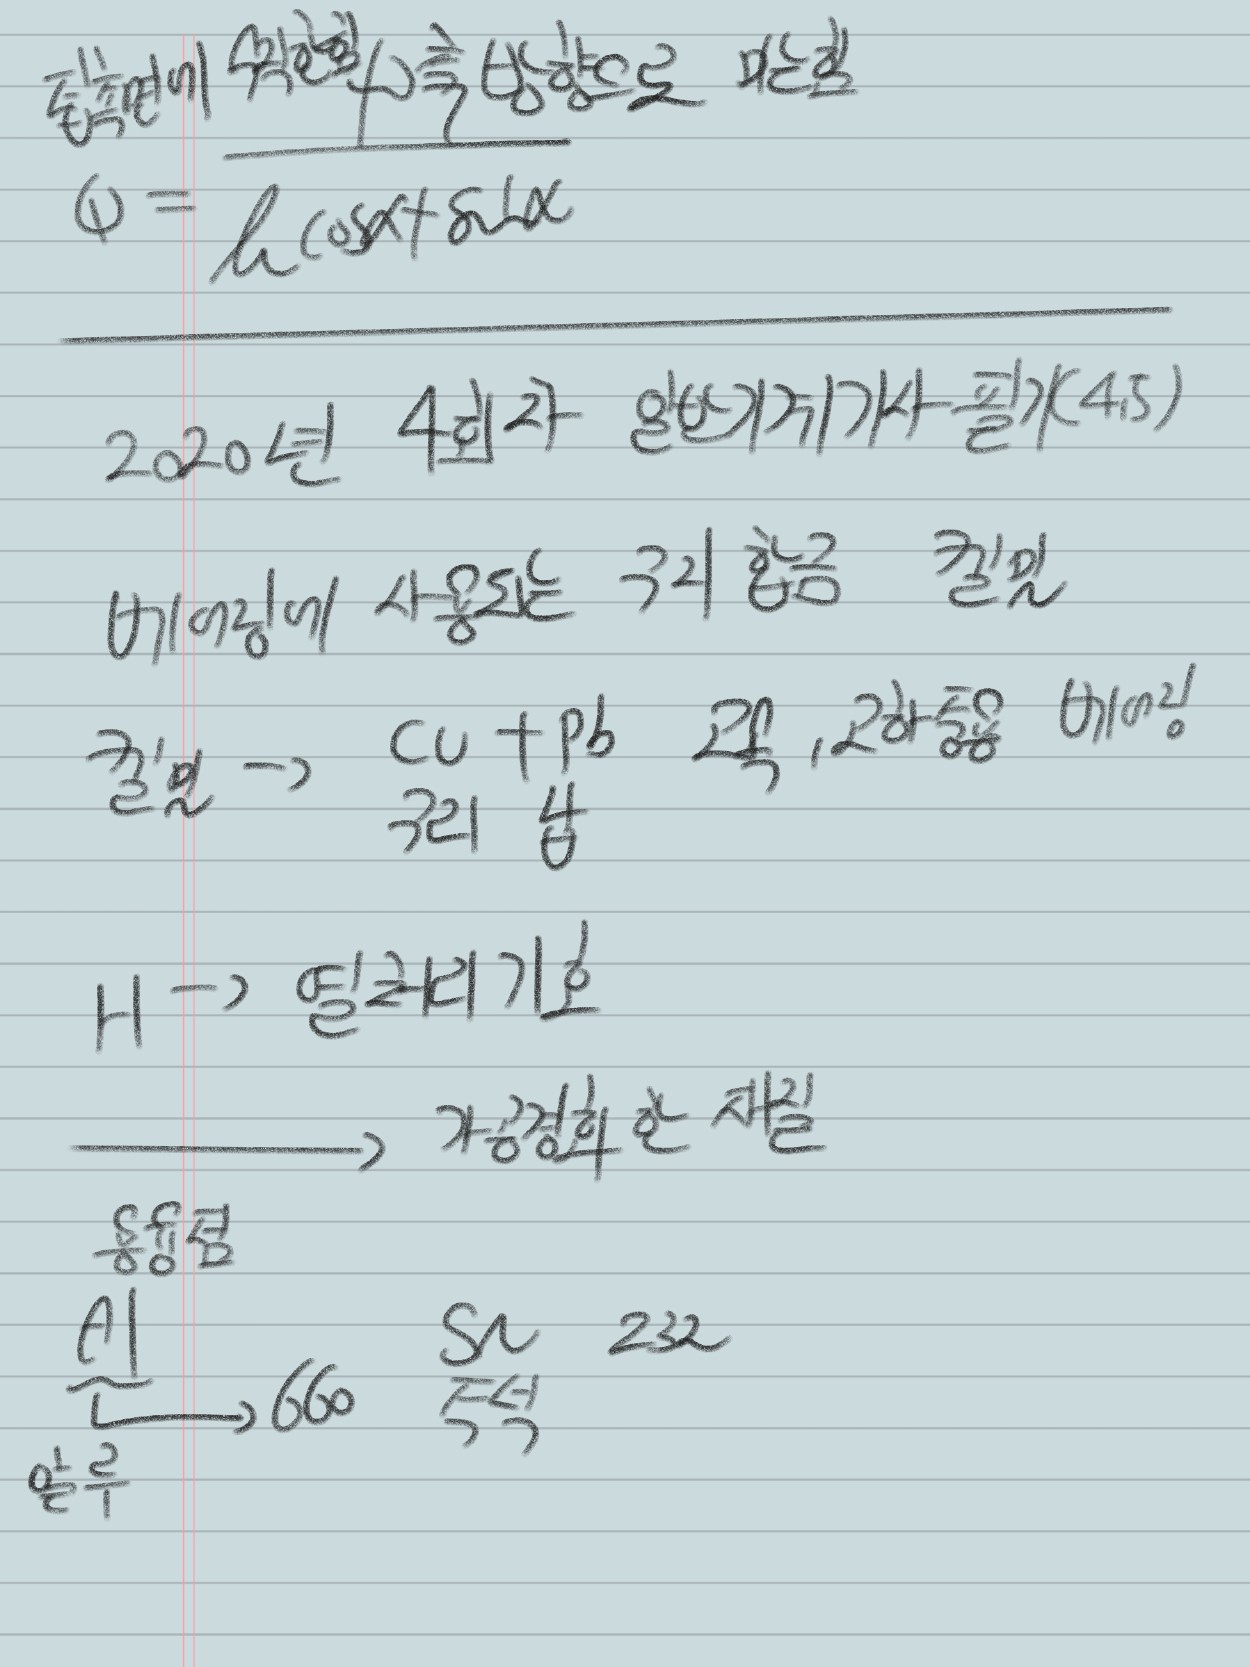 톱측면에 수직한힘 축 방향으로 미는힘
Q = μcosα+sinα
2020년 4회차 일반기계기사 필기(4,5)
베어링에 사용되는 구리 합금 켈밋
켈밋 → Cu + Pb 고속, 고하중용 베어링
구리 납
H → 열처리 기호
→ 가공경화 한 재질
용융점
Al Sn 232
→ 660 주석
알루